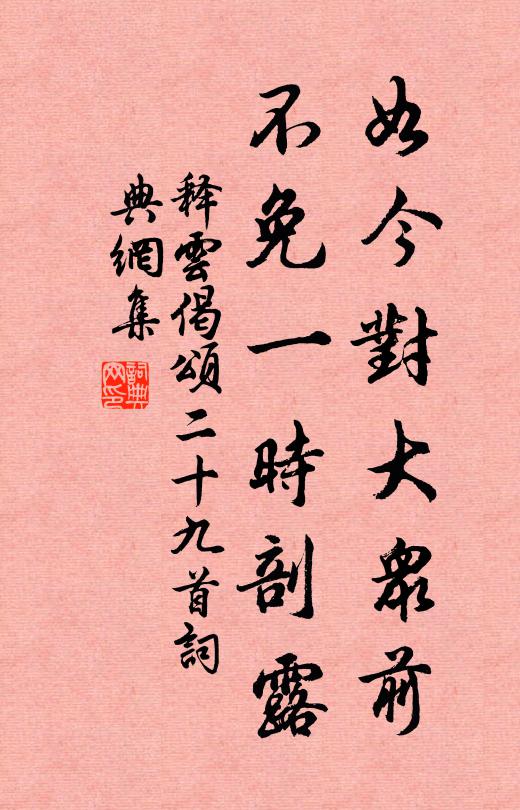 如今對大眾前
不免一時剖露
释雲偈頌二十九首詞
典網集
詞典
网印